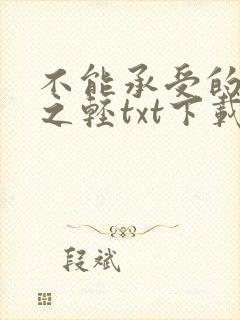 不能承受的
之轻txt下载
段斌